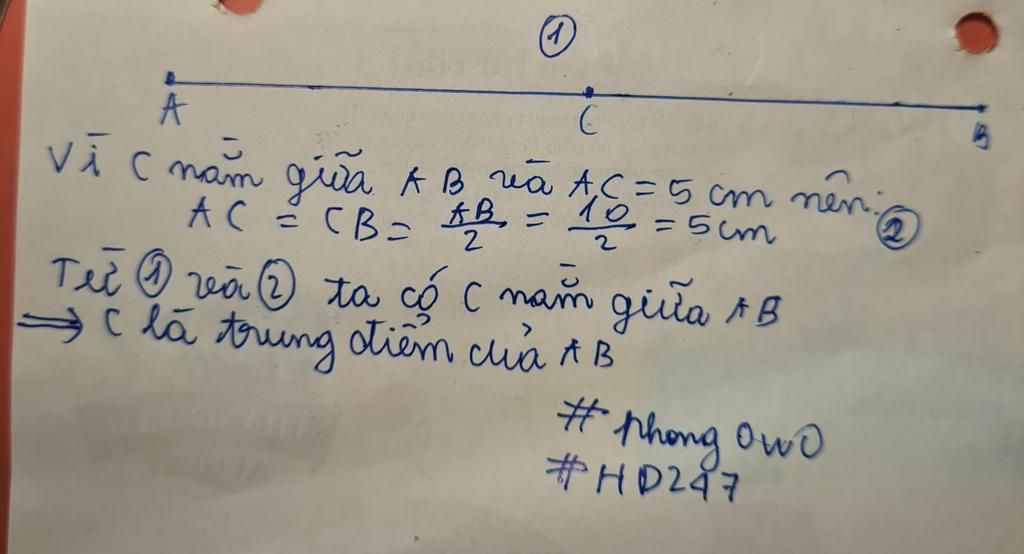 ①
A C B
Vì C nằm giữa AB và AC = 5 cm nên:
AC = CB = AB/2 = 10/2 = 5cm ②
Từ ① và ② ta có C nằm giữa AB
⇒ C là trung điểm của AB
# phong OwO
# HD247